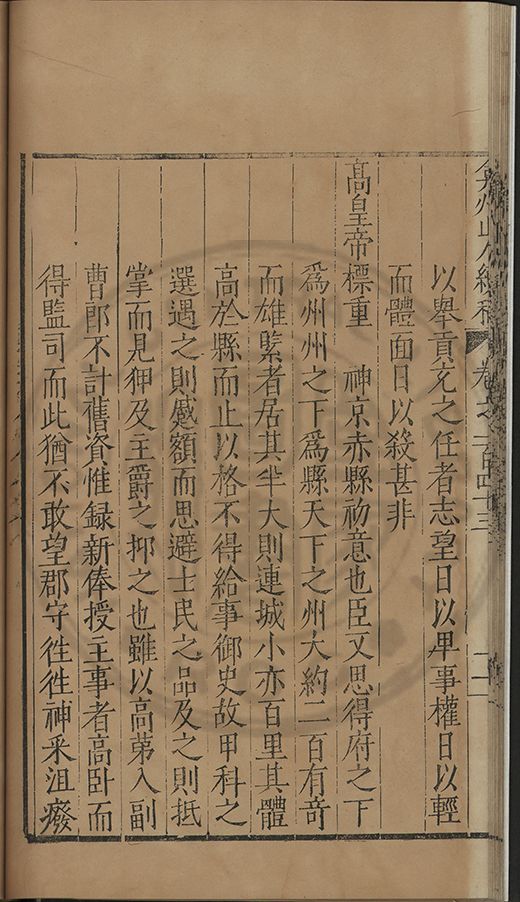 弇州山人續稿 卷之一百四十三
以舉貢充之任者志望日以卑事權日以輕
而體面日以殺甚非
高皇帝標重 神京赤縣初意也臣又思得府之下
爲州州之下爲縣天下之州大約二百有竒
而雄緊者居其半大則連城小亦百里其體
高於縣而止以格不得給事御史故甲科之
選遇之則蹙額而思避士民之品及之則抵
掌而見狎及主爵之抑之也雖以高第入副
曹郎不計舊資惟録新俸授主事者高卧而
得監司而此猶不敢望郡守徃徃神采沮癈